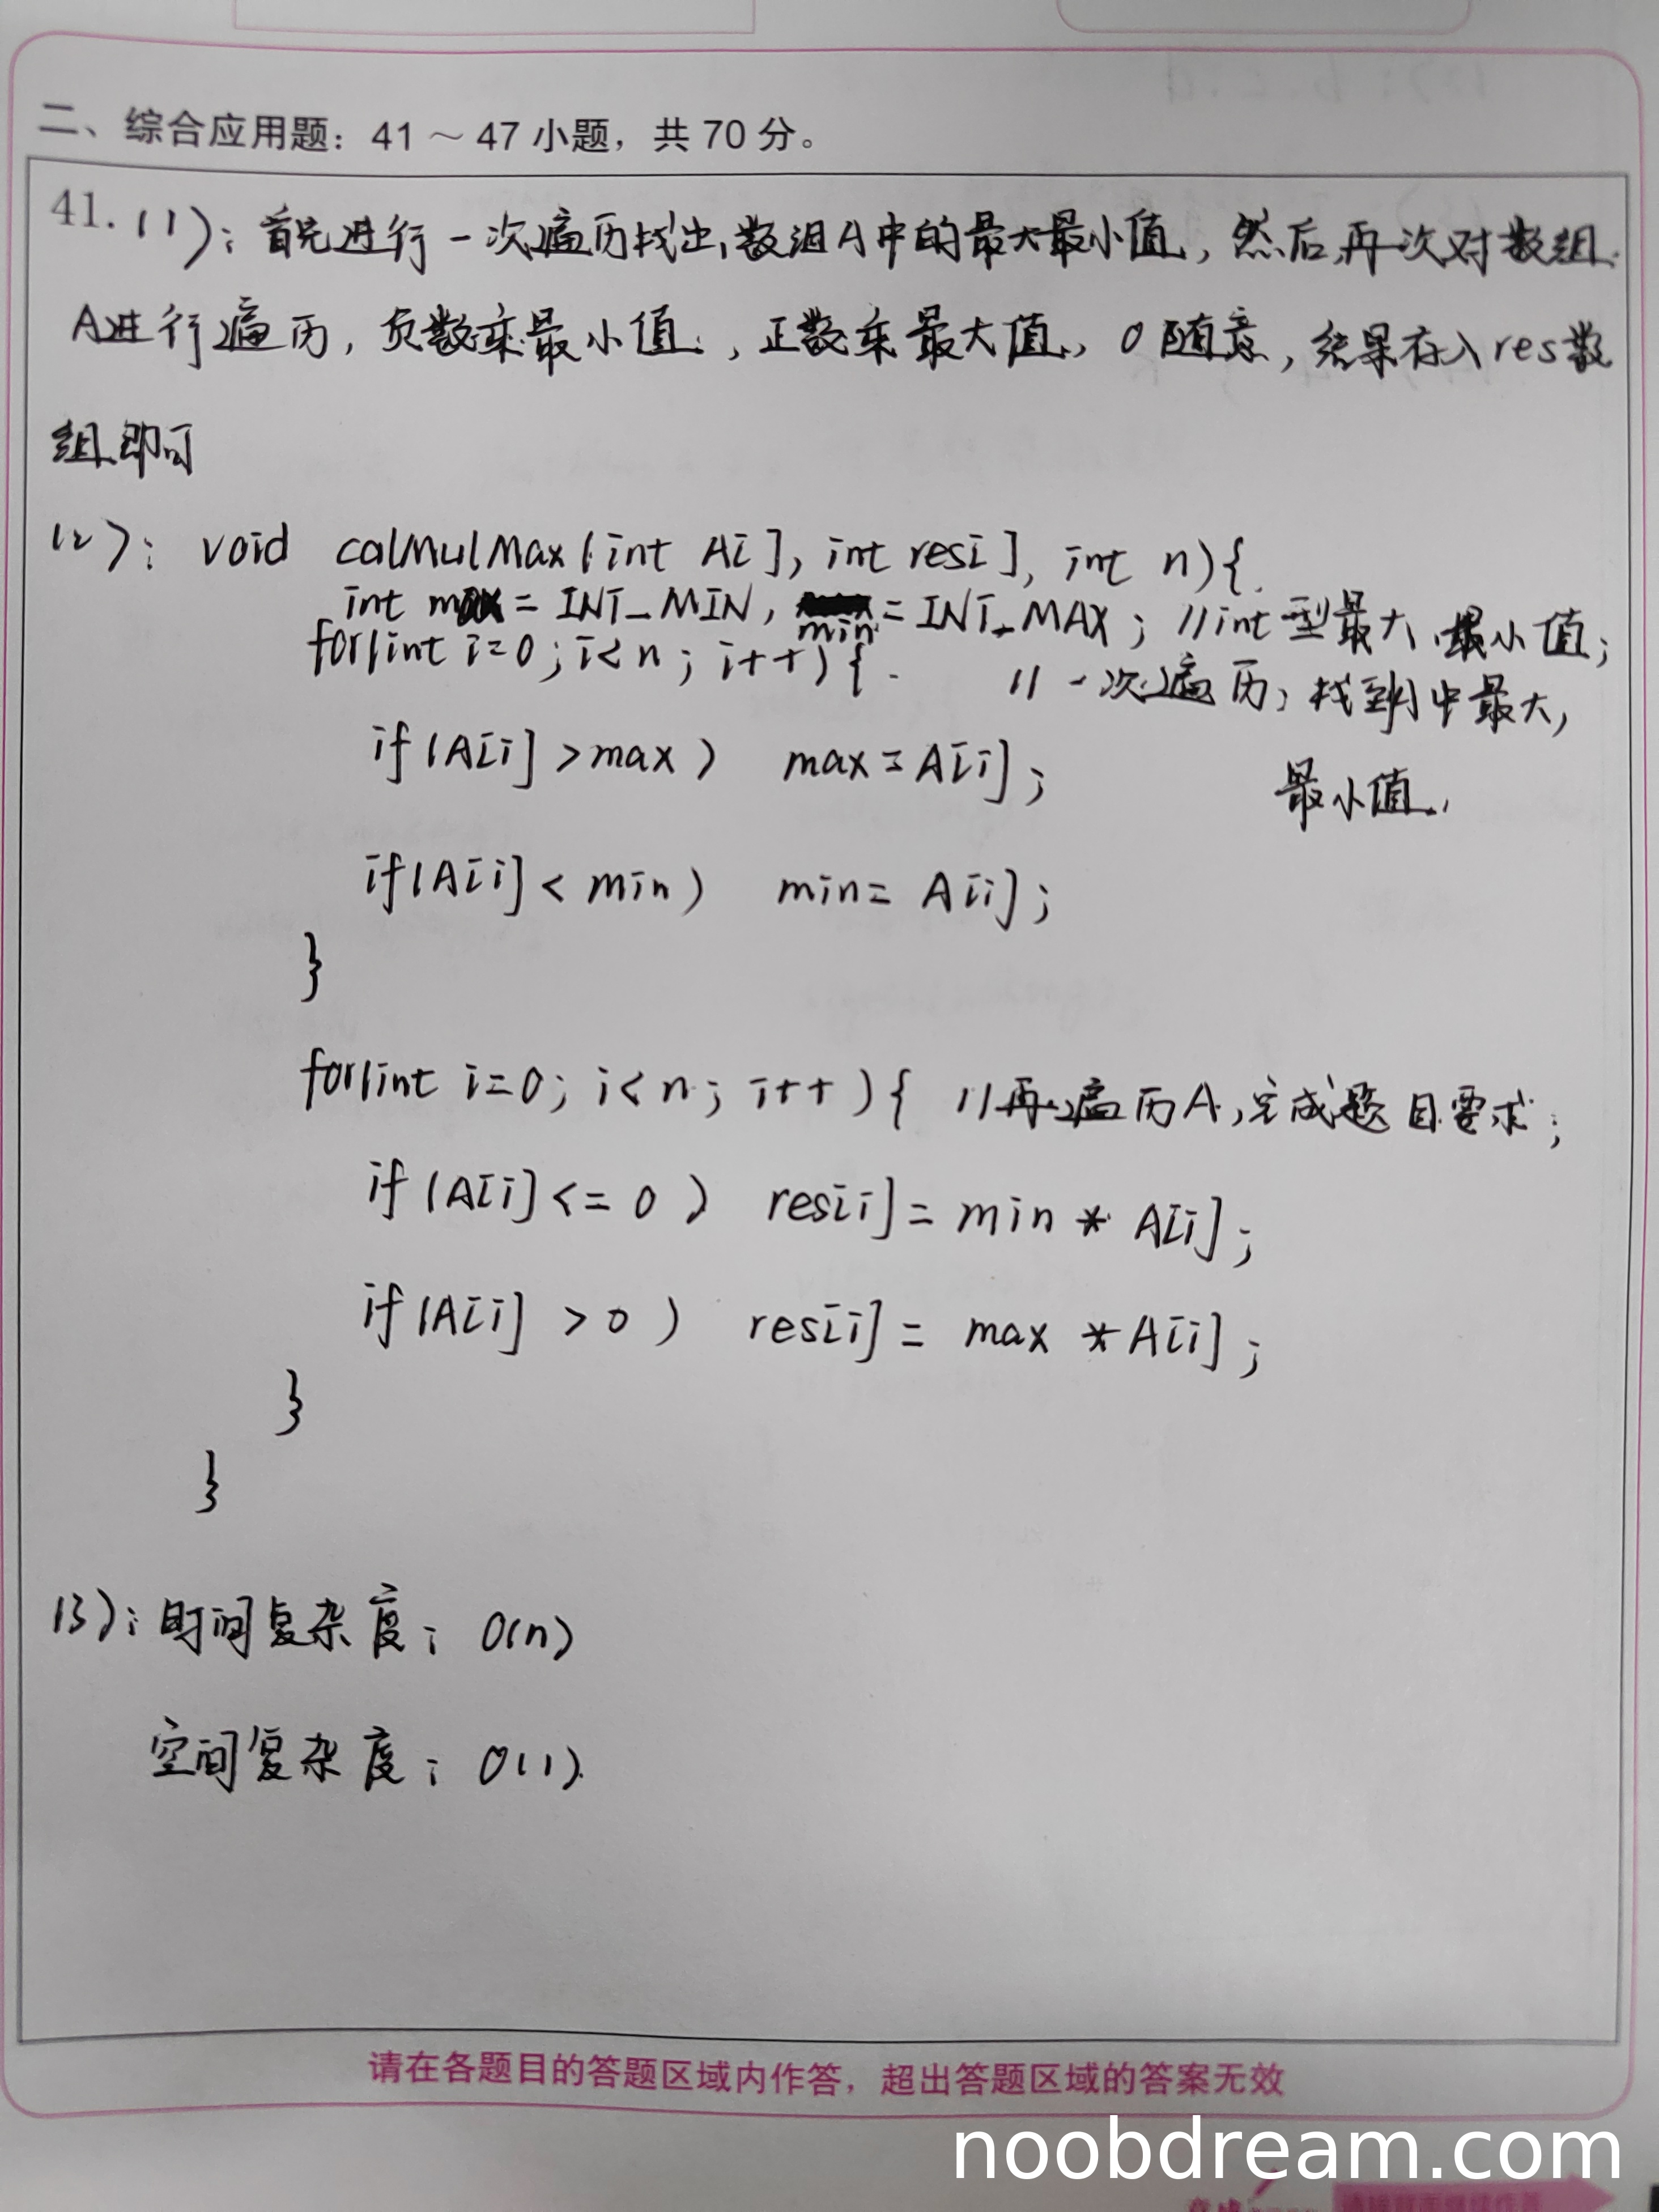 二、综合应用题：41 ～ 47 小题，共 70 分。
41. (1)：首先进行一次遍历找出数组A中的最大最小值，然后再次对数组
A进行遍历，负数乘最小值，正数乘最大值，0随意，结果存入res数
组即可
(2)：void calMulMax(int A[], int res[], int n){
int max = INT_MIN, min = INT_MAX; //int型最大、最小值;
for(int i=0; i<n; i++){ //一次遍历，找到中最大,
if(A[i]>max) max=A[i];
最小值.
if(A[i]<min) min=A[i];
}
for(int i=0; i<n; i++){ //再遍历A,完成题目要求;
if(A[i]<=0) res[i]=min*A[i];
if(A[i]>0) res[i]=max*A[i];
}
}
(3)：时间复杂度：O(n)
空间复杂度：O(1).
请在各题目的答题区域内作答，超出答题区域的答案无效
noobdream.com